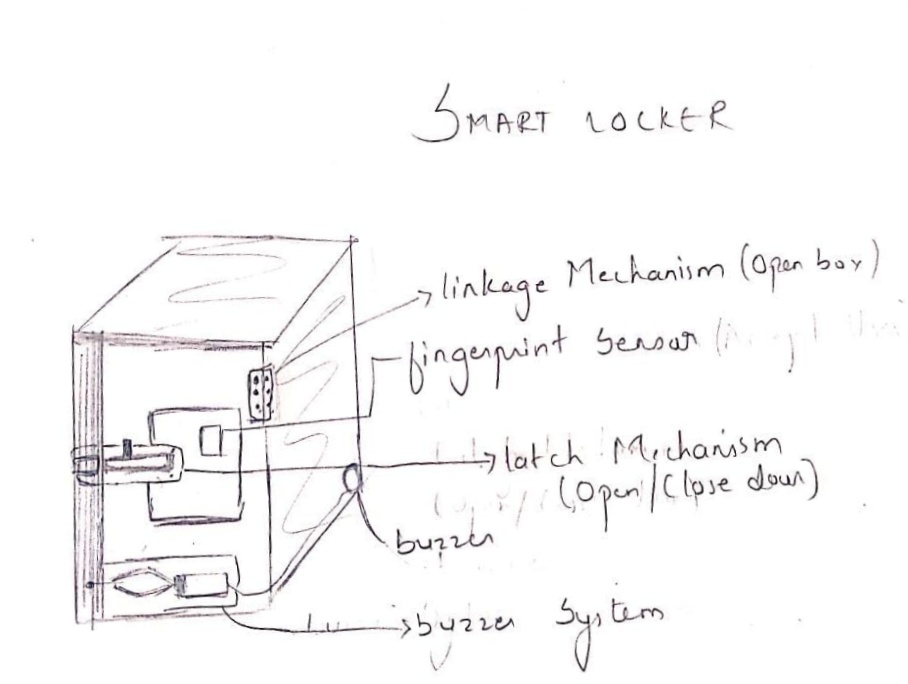 SMART LOCKER
linkage Mechanism (Open box)
fingerprint Sensor
latch Mechanism
(Open/Close door)
buzzer
buzzer System